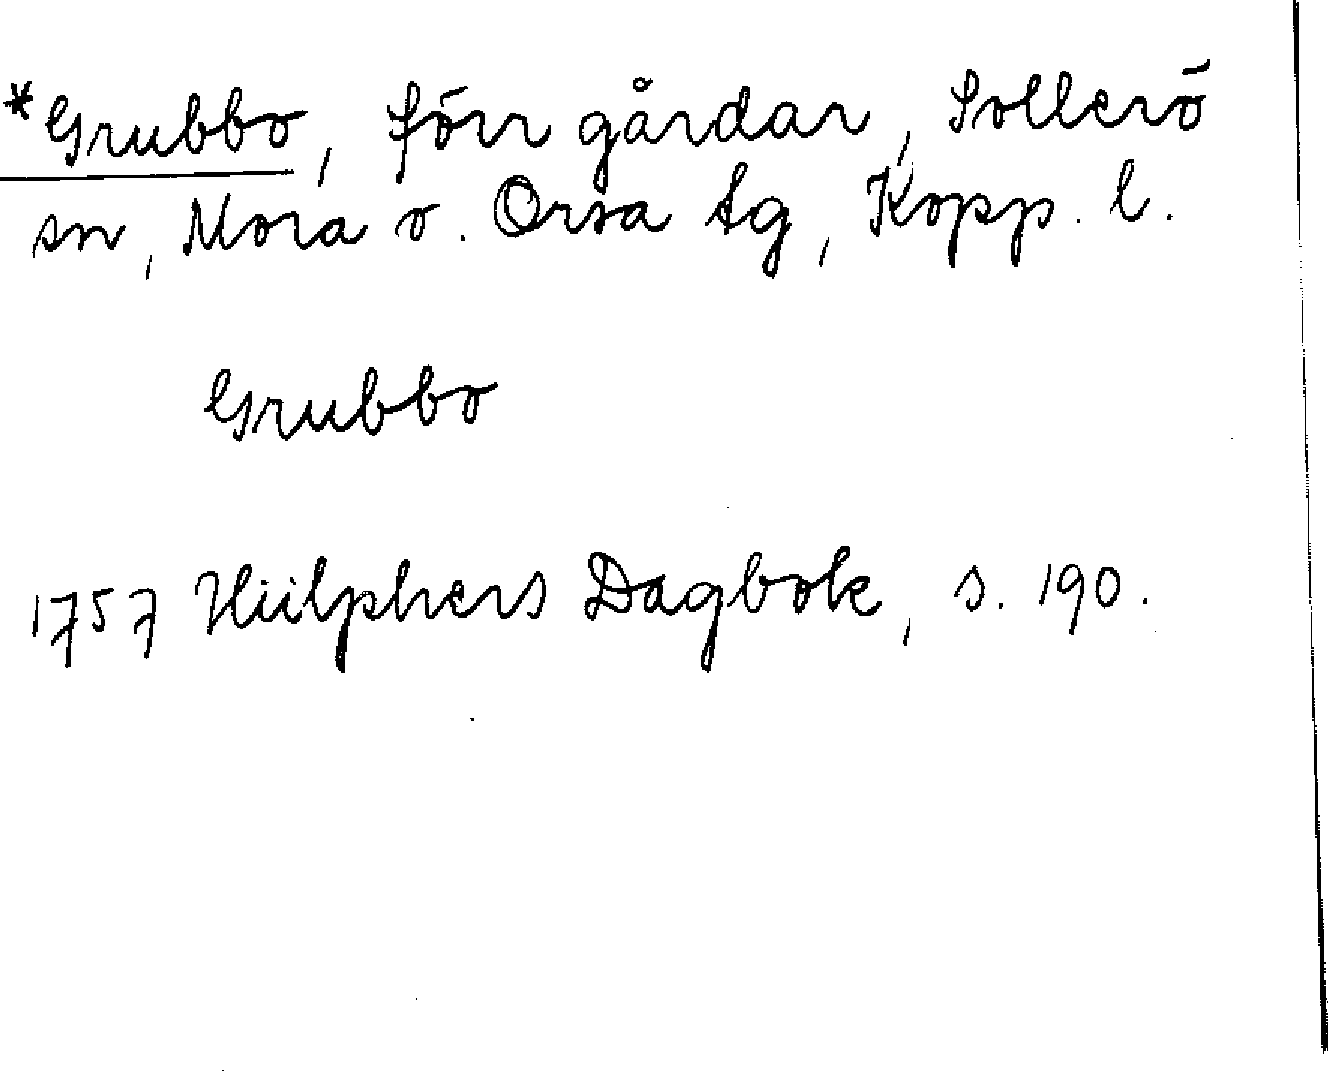 *Grubbo, förr gårdar, Sollerö
sn, Mora o. Orsa tg, Kopp. l.
Grubbo
1757 Hülphers Dagbok, s. 190.